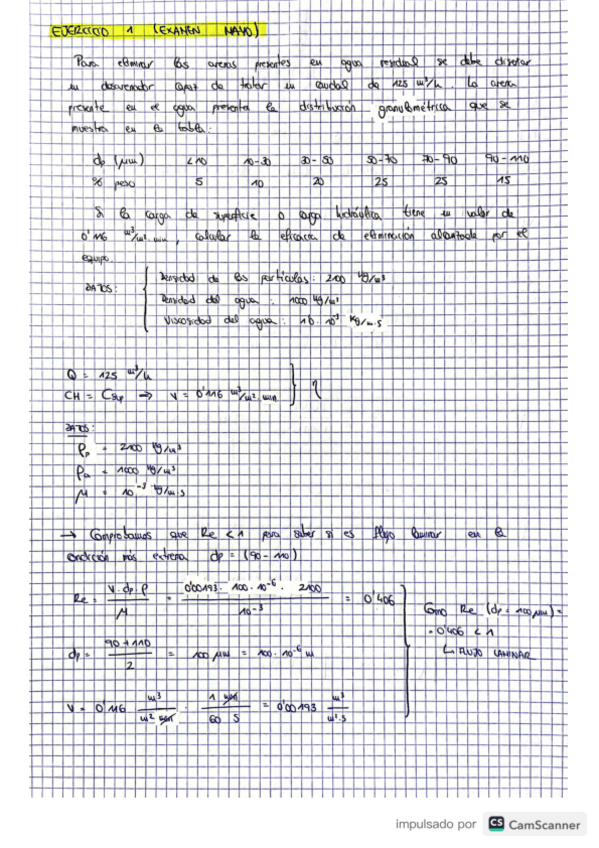 EJERCICIO 1 (EXAMEN MAYO)
Para eliminar las arenas presentes en agua residual se debe diseñar
un desarenador capaz de tratar un caudal de 125 m³/h. La arena
presente en el agua presenta la distribución granulométrica que se
muestra en la tabla:
dp (µm) <10 10-30 30-50 50-70 70-90 90-110
% peso 5 10 20 25 25 15
Si la carga de superficie o carga hidráulica tiene un valor de
0'116 m³/m²·min, calcular la eficacia de eliminación alcanzada por el
equipo.
DATOS: Densidad de las partículas: 2100 kg/m³
Densidad del agua: 1000 kg/m³
Viscosidad del agua: 10⁻³ kg/m·s
Q = 125 m³/h
CH = Csup → V = 0'116 m³/m²·min } η
DATOS:
ρp = 2100 kg/m³
ρa = 1000 kg/m³
µ = 10⁻³ kg/m·s
→ Comprobamos que Re < 1 para saber si es flujo laminar en la
condición más extrema dp = (90-110)
Re = V·dp·ρ / µ = 0'00193 · 100·10⁻⁶ · 2100 / 10⁻³ = 0'406
Como Re (dp = 100 µm) =
= 0'406 < 1
↳ FLUJO LAMINAR
dp = 90+110 / 2 = 100 µm = 100·10⁻⁶ m
V = 0'116 m³/m² min · 1 min/60 s = 0'00193 m³/m²·s
impulsado por CS CamScanner